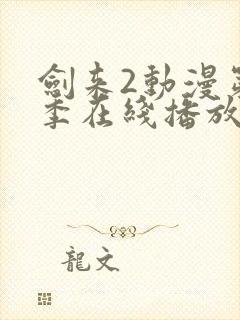 劍来2動漫第
季在綫播放
龍文